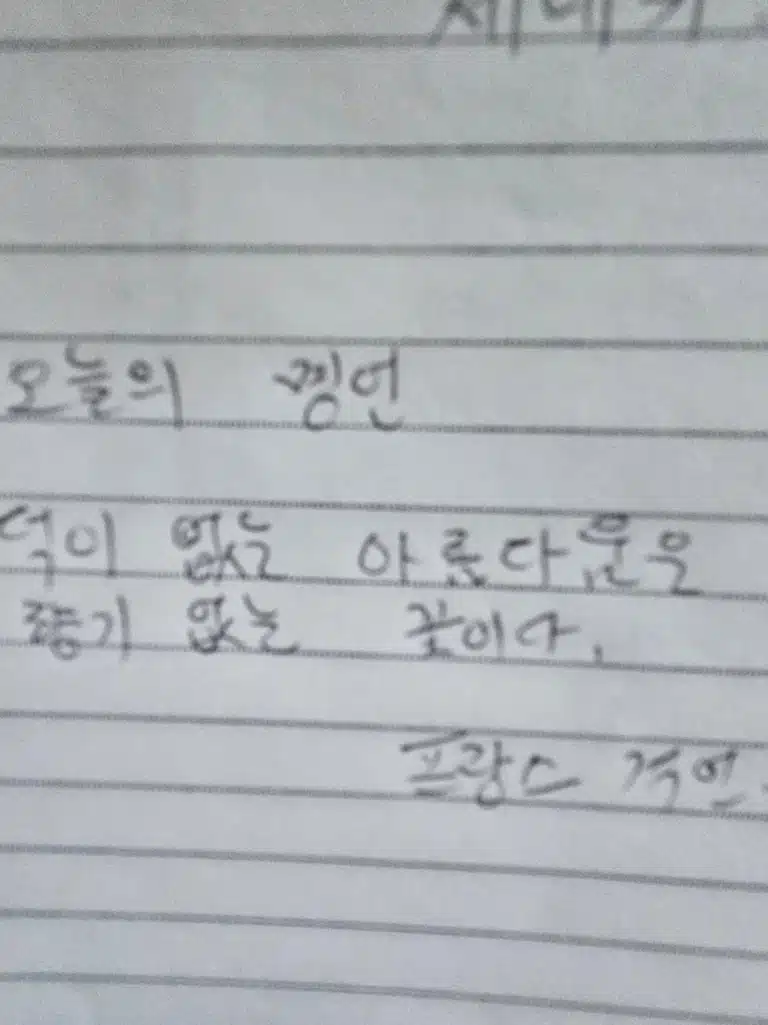 오늘의 명언
덕이 없는 아름다움은
향기 없는 꽃이다.
프랑스 격언.